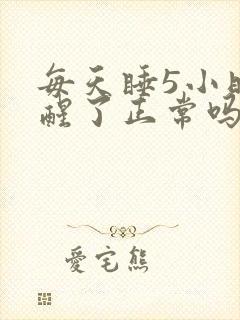 每天睡5小时
醒了正常吗
爱宅熊